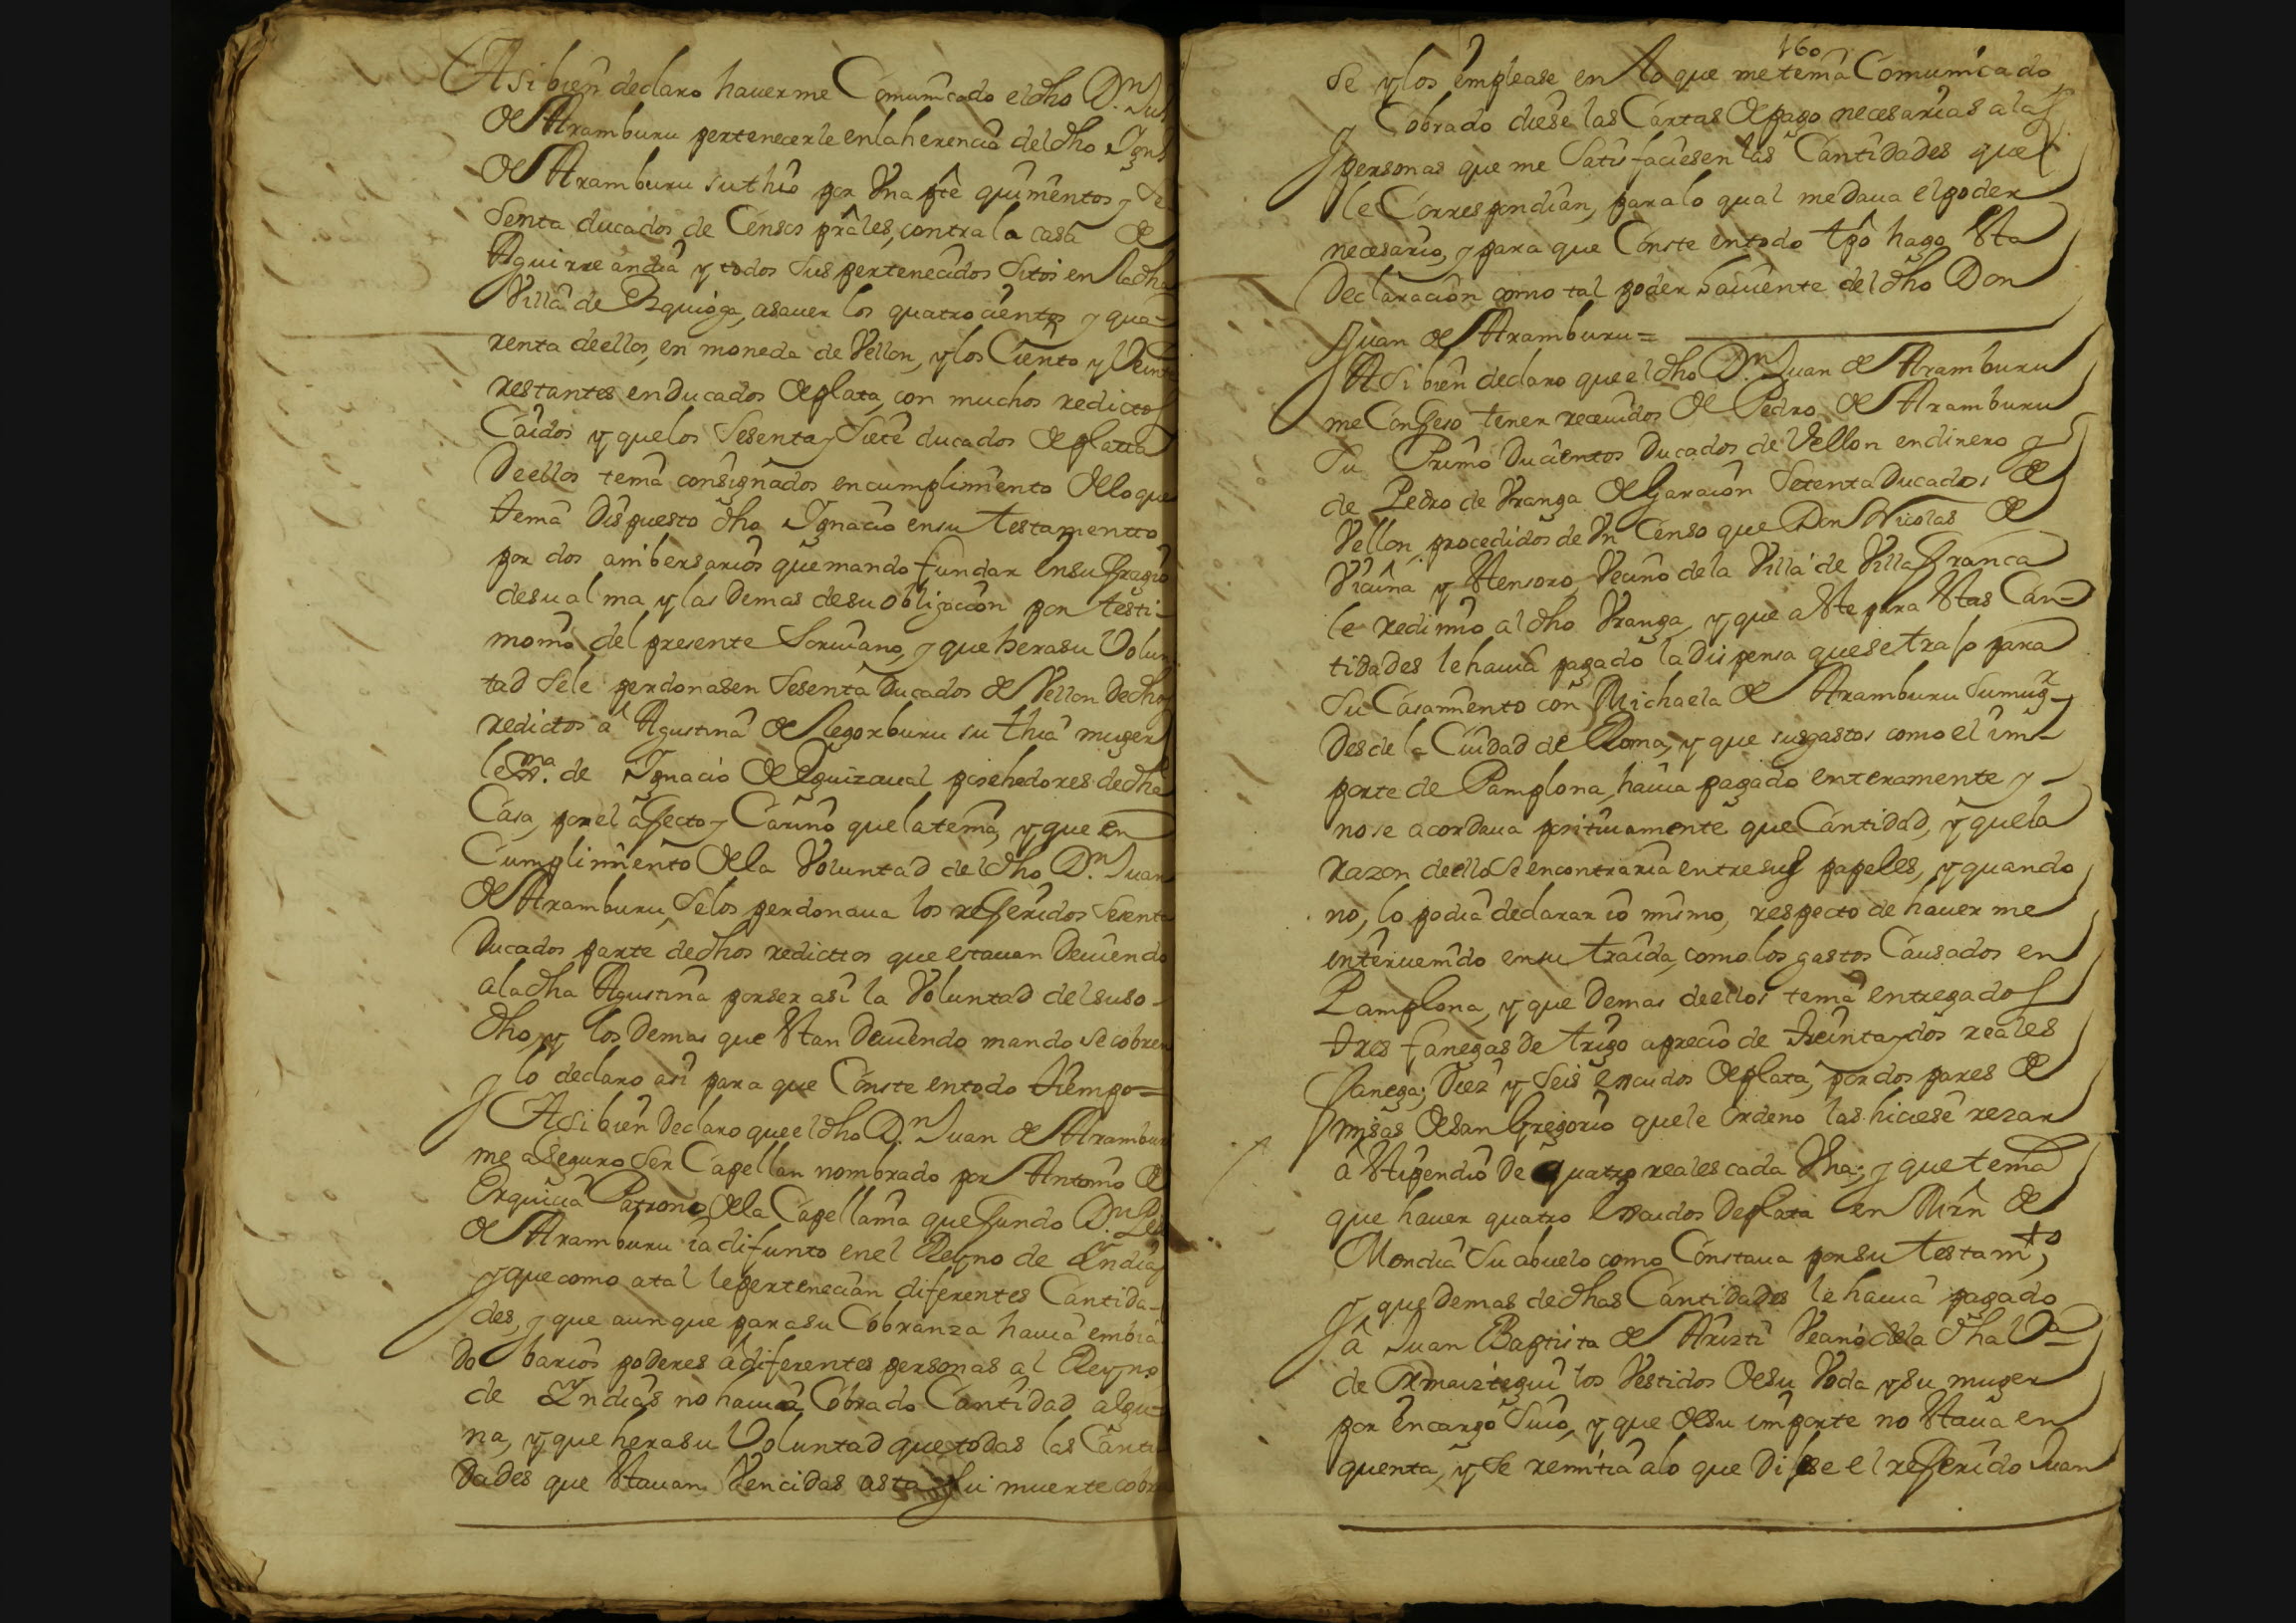 Asi bien declaro hauerme Comunicado el dho Dn. Ju
de Aramburu pertenecerle en la herencia del dho Ign
de Aramburu su thio por Vna pte quinientos y se
senta ducados de Censos prales, contra la casa de
Aguirre andia y todos sus pertenecidos sitos en la dha
Villa de Ezquioga, asauer los quatrocientos y qua-
renta de ellos, en moneda de Vellon, y los Ciento y Veinte
restantes en Ducados de plata, con muchos redictos
Caidos y que los sesenta y siete ducados de plata
De ellos tenia consignados en cumplimiento de lo que
tenia Dispuesto dho Ignacio en su testamentto
por dos anibersarios que mando fundar en sufragio
de su alma y las Demas de su obligacion por testi-
monio del presente Scriuano, y que hera su Volun
tad se le perdonasen sesenta Ducados de Vellon De dhos
redictos a Agustina de Legorburu su thia muger
lexma. de Ignacio de Eguizaual posehedores de dha
Casa, por el afecto y Cariño que la tenia, y que en
Cumplimiento de la Voluntad del dho Dn. Juan
de Aramburu, se los perdonaua los referidos sesenta
Ducados parte de dhos redicttos que estauan Deuiendo
a la dha Agustina por ser asi la Voluntad del suso-
dho, y los Demas que Stan Deuiendo mando se cobren
y lo declaro asi para que Conste en todo tiempo=
Asi bien Declaro que el dho Dn. Juan de Arambur
me aseguro ser Capellan nombrado por Antonio de
Orquicia Patrono de la Capellania que fundo Dn. Pe
de Aramburu ia difunto en el Reyno de Indias
y que como a tal le pertenecian diferentes Cantida-
des, y que aunque para su Cobranza hauia embia
do barios poderes a diferentes personas al Reyno
de Indias no hauia Cobrado Cantidad algu-
na, y que hera su Voluntad que todas las Canti
Dades que Stauan Vencidas asta su muerte cobra
160
se y los emplease en lo que me tenia Comunicado
y Cobrado diese las Cartas de pago necesarias a las
personas que me Satisfaciesen las Cantidades que
le Correspondian, para lo qual me daua el poder
necesario, y para que Conste en todo tpo hago Sta
Declaracion como tal poder hauiente del dho Don
Juan de Aramburu=
Asi bien declaro que el dho Dn. Juan de Aramburu
me Confeso tener receuidos de Pedro de Aramburu
su Primo Ducientos Ducados de Vellon en dinero y
de Pedro de Vranga de Garacion Setenta Ducados de
Vellon, procedidos de Vn Censo que Don Nicolas de
Viciina y Stensoro, Vecino de la Villa de Villafranca
le redimio al dho Vranga, y que a Ste para Stas Can-
tidades le hauia pagado la dispensa que se trajo para
su Casamiento con Michaela de Aramburu su mugr
Desde la Ciudad de Roma, y que sus gastos como el im-
porte de Pamplona, hauia pagado enteramente y
no se acordaua positiuamente que Cantidad, y que la
razon de ello se encontraria entre sus papeles, y quando
no, lo podia declarar io mismo, respecto de hauer me
interuenido en su traida, como los gastos Causados en
Pamplona, y que Demas de ellos tenia entregados
tres fanegas de trigo a precio de treinta y dos reales
fanega; Diez y seis escudos de plata, por dos pares de
misas de san Gregorio que le ordeno las hiciese rezar
a Stipendio de quatro reales cada Vna; y que tenia
que hauer quatro escudos de plata en Mrn de
Mondia su abuelo como Constaua por su testamto,
y que demas de dhas Cantidades le hauia pagado
a Juan Baptista de Aristi Vecino de la dha Va
de Ormaiztegui los Vestidos de su Voda y su muger
por encargo suio, y que de su importe no Staua en
quenta, y se remitia a lo que Dijese el referido Juan